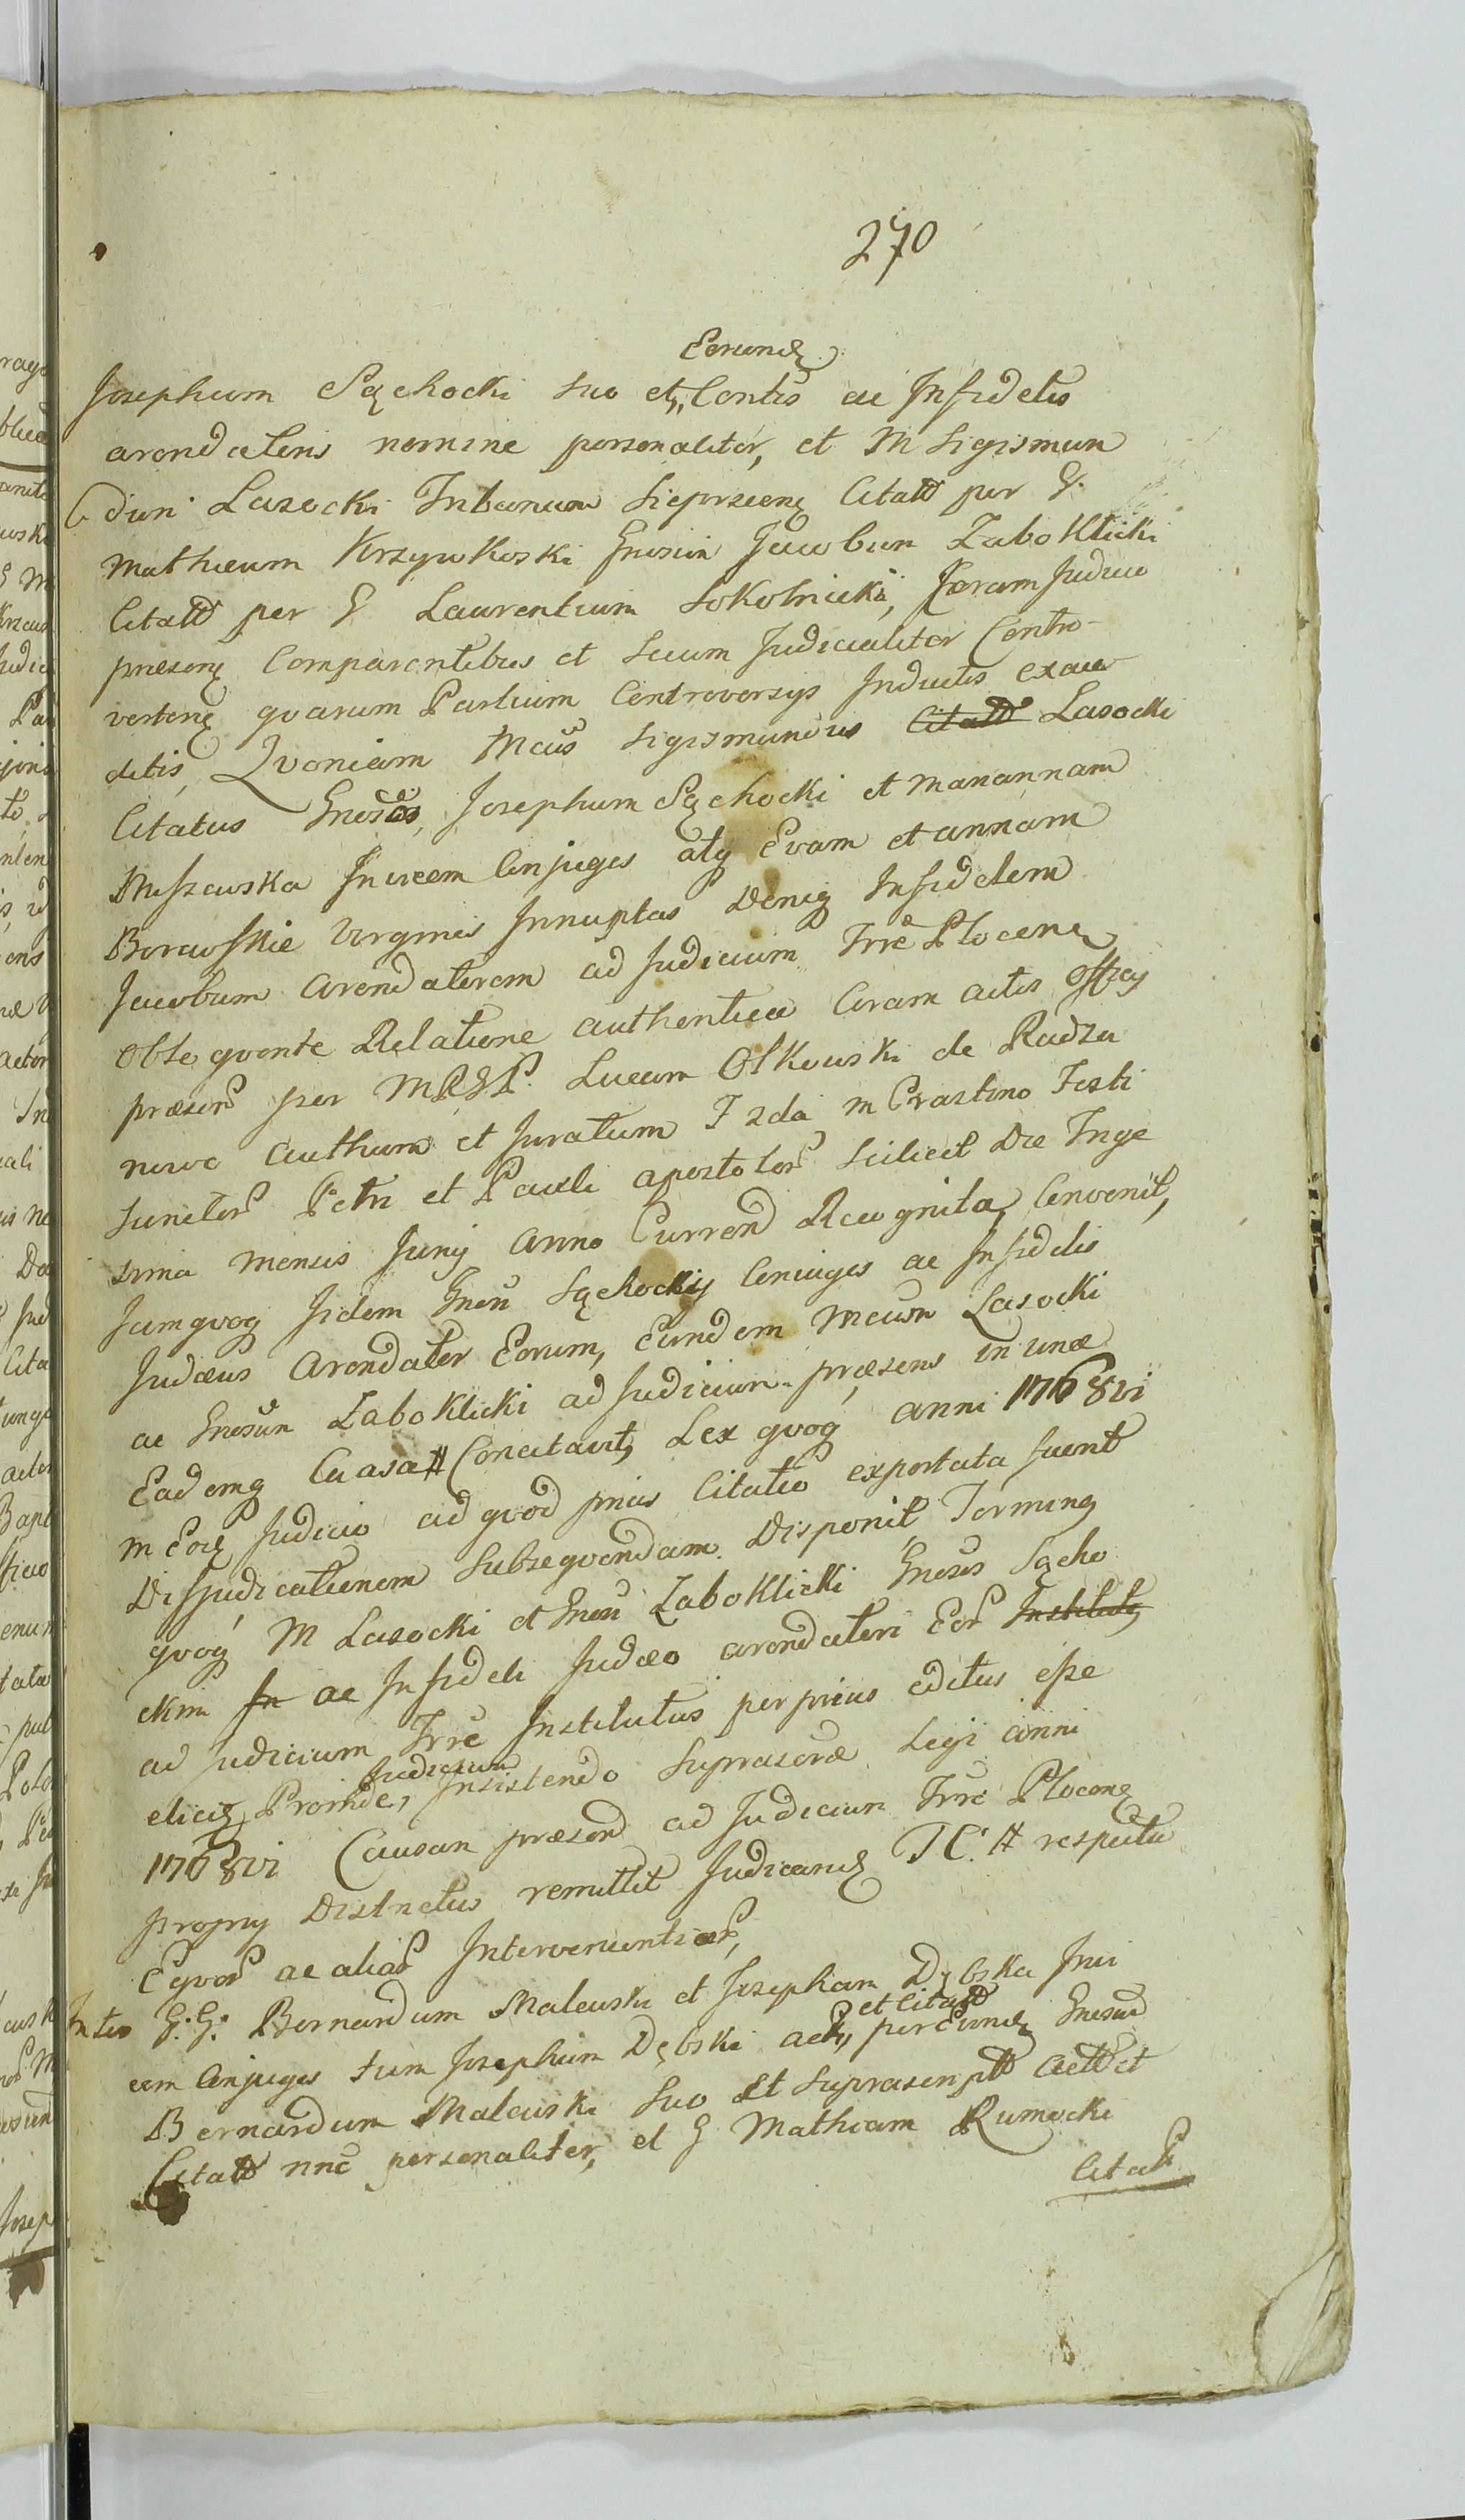 270
Eorund
Josephum Sęchocki suo et Contis ac Infidelis
arendatoris nomine personaliter, et M Sigismun
dum Lasocki Tribunum Sieprscens Citatt per G.
Mathaeum Krzywkoski Gnosum Jacobum Zaboklicki
Citatt per G Laurentium Sokolnicki, Coram Judicio
praesenq Comparentibus et Secum Judicialiter Contro-
vertenq quarum Partium Controversys Inductis exau
ditis, Qvoniam Mcus Sigismundus Citatt Lasocki
Citatus Gnosos Josephum Sęchocki et Mariannam
Miszewska Invicem Conjuges atq Evam et annam
Borawskie Virgines Innuptas Deniq Infidelem
Jacobum Arendatorem ad Judicium Trre Plocens
Obseqvente Relatione authentica Coram actis Offcy
praesen per M R G P. Lucam Olkowski de Radza
nowo authum et Juratum F 2da in Crastino Festi
Sanctor Petri et Pauli apostolor Scilicet Die Trige
sima mensis Juny Anno Currend Recognita, Convenit,
Jamqvoq Jidem Gnosi Sęchockij Coniuges ac Infidelis
Judaeus Arendator Eorum, Eundem Mcum Lasocki
ac Gnosum Zaboklicki ad Judicium praesens in una
Eademq Causa Concitavit, Lex qvoq anni 1768vi
in Eod Judicio ad qvod prius Citatio exportata fuerit
Disjudicationem Subseqvendam Disponit, Terminq
qvoq M Lasocki et Gnosi Zaboklicki Gnosis Sęcho
ckim In ac Infideli Judaeo arendatori Eor Institutq
ad Judicium Trre Institutus per prius editus esse
Judicium
elicit, Proinde, Insistendo Suprascrae Legi anni
1768vi Causam praesend ad Judicium Trre Plocens
propry Districtus remittit Judicand TC. respectu
Eqvor ac aliar Intervenientiar,
Inter G.G. Bernardum Malewski et Josepham Dębska Invi
et Citatt
cem Conjuges tum Josephum Dębski act, per Eund Gnosum
Bernardum Malewski Suo et Suprascriptt actt et
Citatt nne personaliter, et G Mathiam Rumocki
Citatt